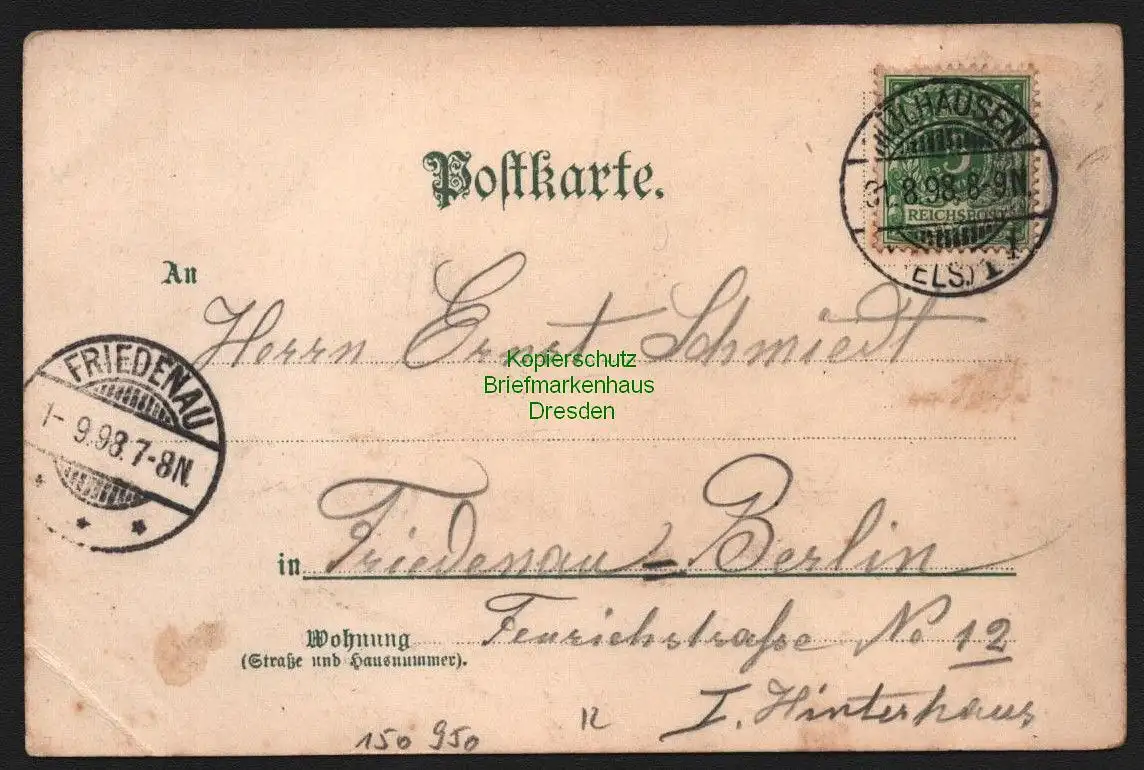 Postkarte.
MÜLHAUSEN
5
31.8.98.8-9N.
REICHSPOST
(ELS.) 1 f
An
Herrn Ernst Schmiedt
FRIEDENAU
1-9.98.7-8N.
Kopierschutz
Briefmarkenhaus
Dresden
in Friedenau=Berlin
Wohnung
(Straße und Hausnummer).
Feurichstraße No 12
I. Hinterhaus
150 950